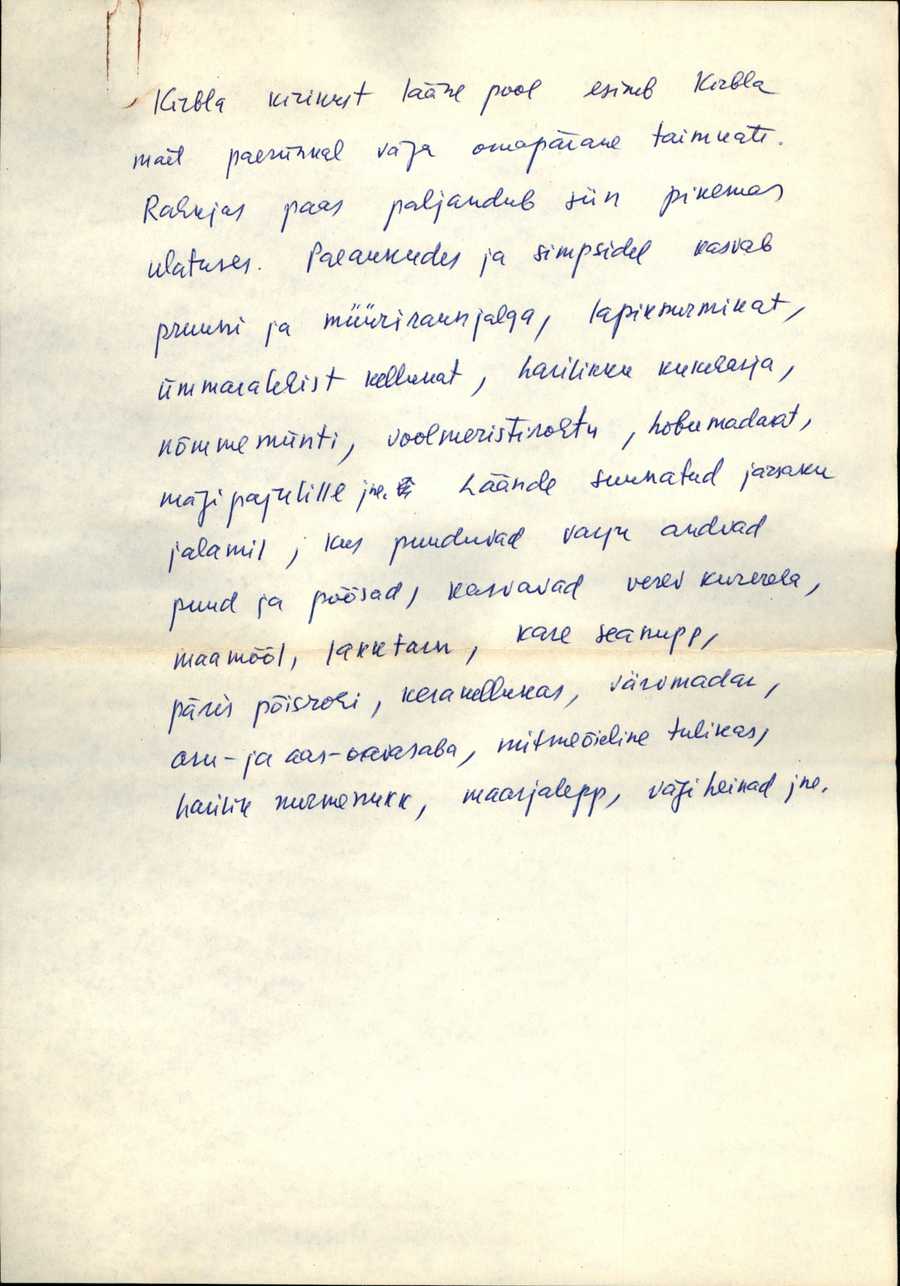 Kirbla kirikust lääne pool esineb Kirbla
mäel paerünkal väga omapärane taimkate.
Rahkjas paas paljandub siin pikemas
ulatuses. Paeaukudes ja simpsidel kasvab
pruuni ja müüriraunjalga, lapiknurmikat,
ümmaralehist kellukat, harilikku kukeharja,
nõmmemünti, voolmeristirohtu, hobumadarat,
mägipajulille jne. Läände suunatud järsaku
jalamil, kus puuduvad varju andvad
puud ja põõsad, kasvavad verev kurereha,
maamõõl, lakktarn, kare seanupp,
päris põisrohi, kerakellukas, värvmadar,
aru- ja aas-oravasaba, mitmeõieline tulikas,
harilik nurmenukk, maarjalepp, vägiheinad jne.